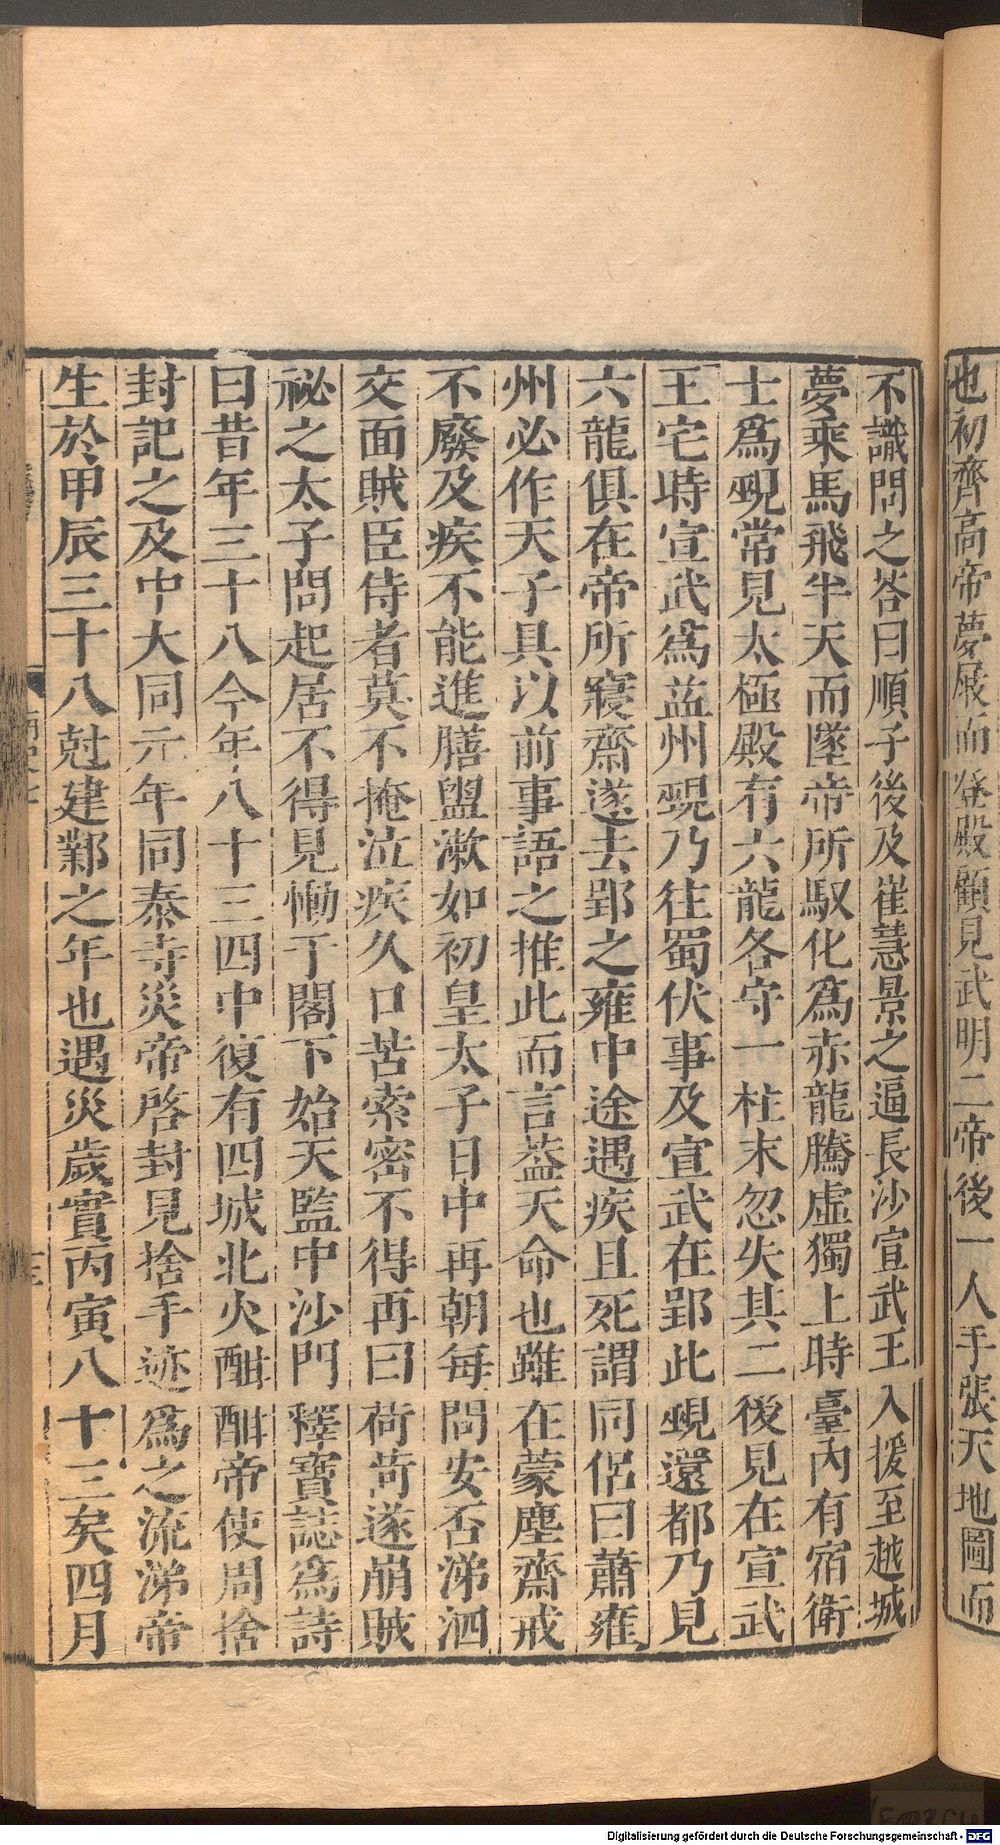 也初齊高帝夢屐而登殿顧見武明二帝後一人手張天地圖而
不識問之答曰順子後及崔慧景之逼長沙宣武王入援至越城
夢乘馬飛半天而墜帝所馭化爲赤龍騰虛獨上時臺內有宿衛
士爲覡常見太極殿有六龍各守一柱末忽失其二後見在宣武
王宅時宣武爲益州覡乃往蜀伏事及宣武在郢此覡還都乃見
六龍俱在帝所寢齋遂去郢之雍中途遇疾且死謂同侶曰蕭雍
州必作天子具以前事語之推此而言葢天命也雖在蒙塵齋戒
不廢及疾不能進膳盥漱如初皇太子日中再朝每問安否涕泗
交面賊臣侍者莫不掩泣疾久口苦索密不得再曰荷荷遂崩賊
祕之太子問起居不得見慟于閣下始天監中沙門釋寶誌爲詩
曰昔年三十八今年八十三四中復有四城北火酣酣帝使周捨
封記之及中大同元年同泰寺災帝啓封見捨手迹爲之流涕帝
生於甲辰三十八尅建鄴之年也遇災歲實丙寅八十三矣四月
Digitalisierung gefördert durch die Deutsche Forschungsgemeinschaft - DFG